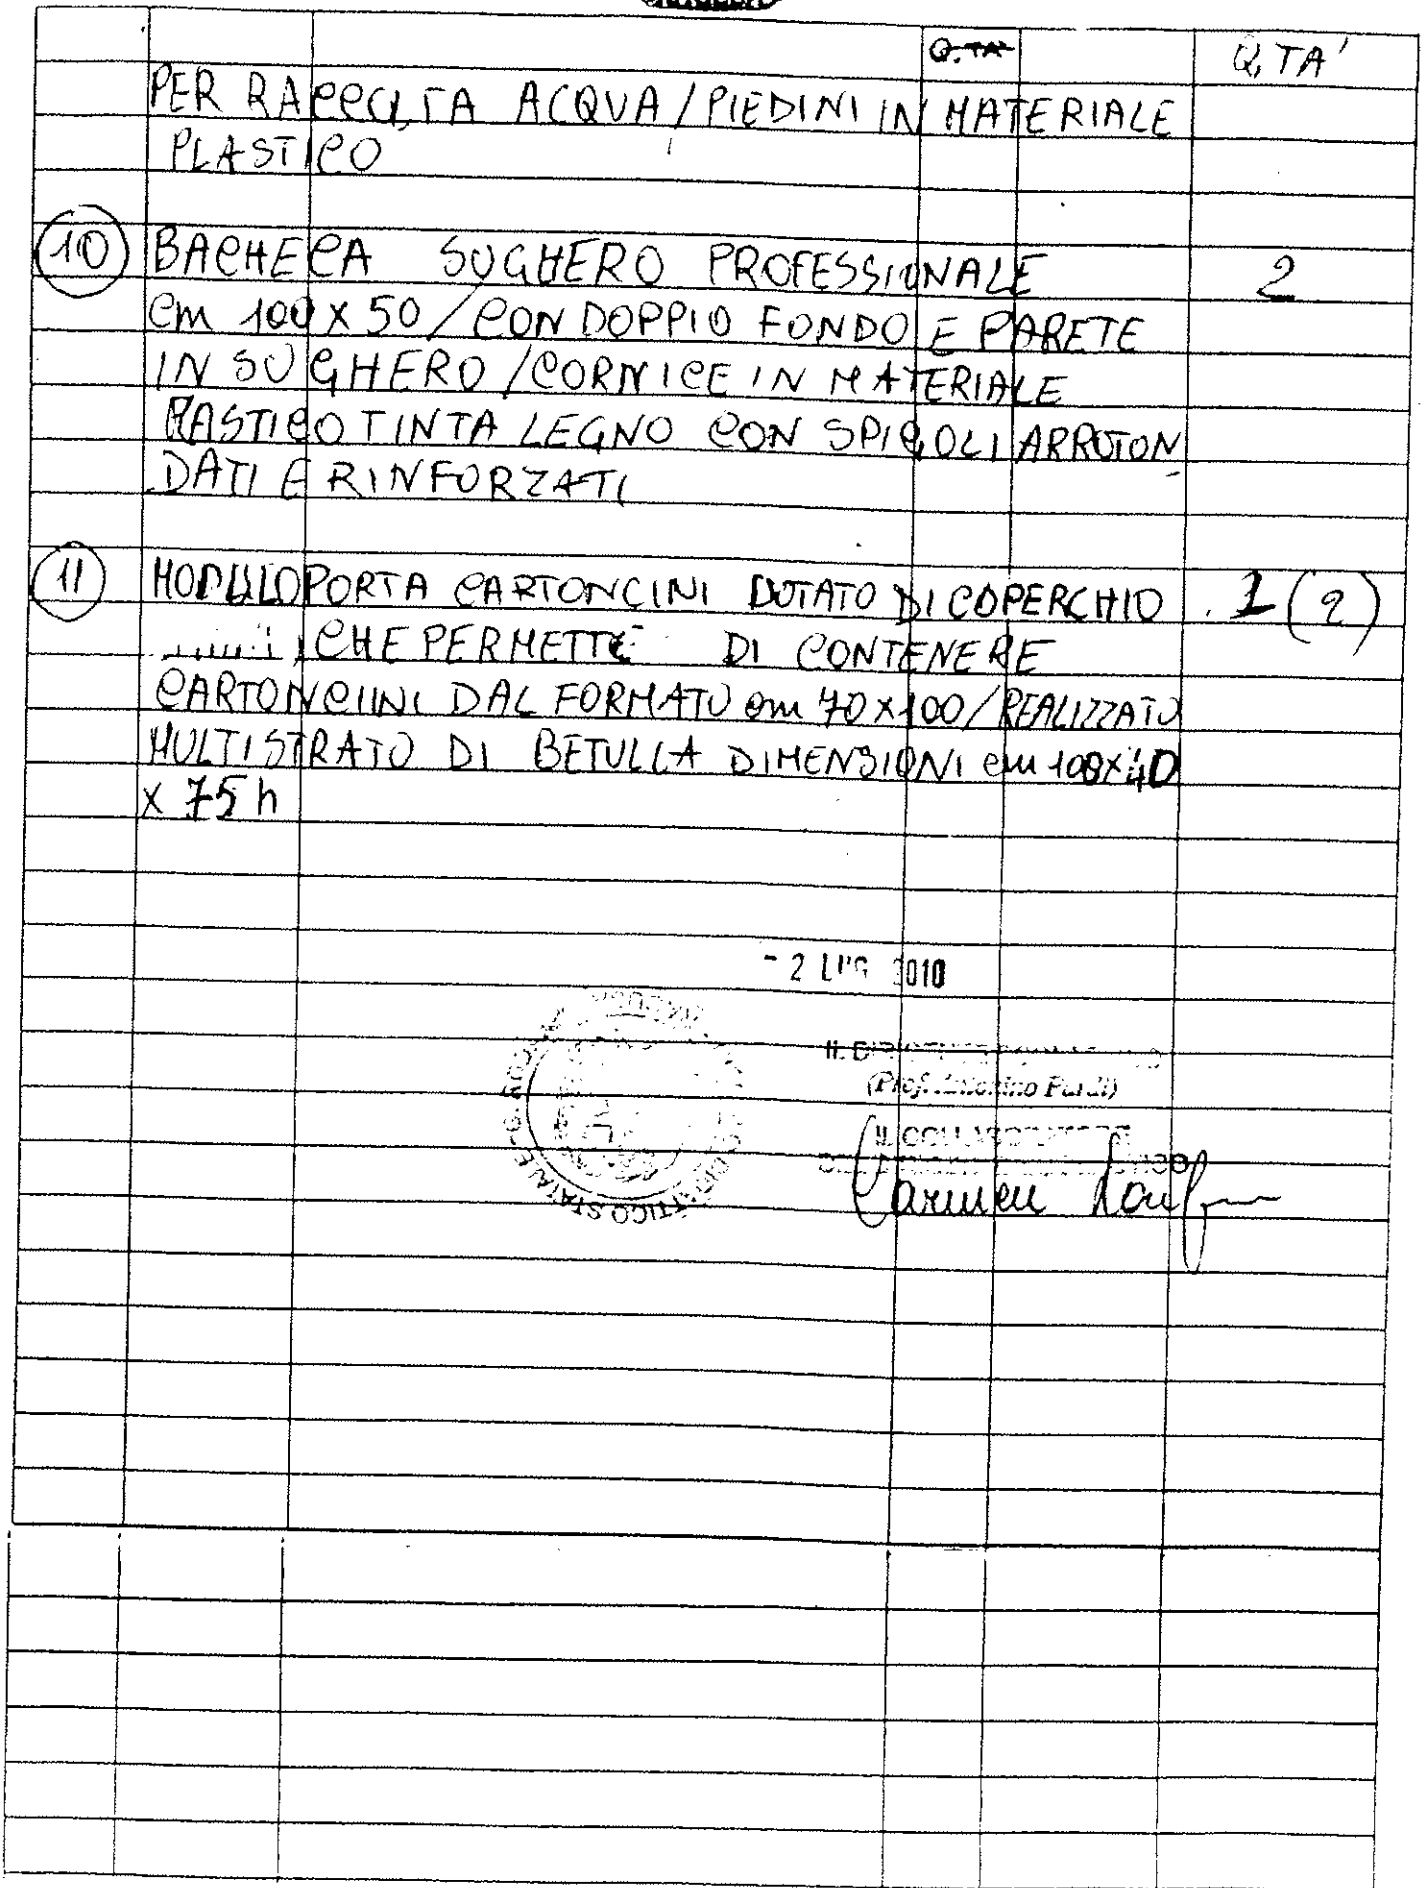 Q.TA' Q.TA'
PER RACCOLTA ACQUA / PIEDINI IN MATERIALE
PLASTICO
10 BACHECA SUGHERO PROFESSIONALE 2
cm 100 X 50 / CON DOPPIO FONDO E PARETE
IN SUGHERO / CORNICE IN MATERIALE
PLASTICO TINTA LEGNO CON SPIGOLI ARROTON
DATI E RINFORZATI
11 MODULO PORTA CARTONCINI DOTATO DI COPERCHIO 1 (2)
CHE PERMETTE DI CONTENERE
CARTONCIINI DAL FORMATO cm 70 X 100 / REALIZZATO
MULTISTRATO DI BETULLA DIMENSIONI cm 100 X 40
X 75 h
- 2 LUG 2010
(Prof.
IL
Carmen
STATALE